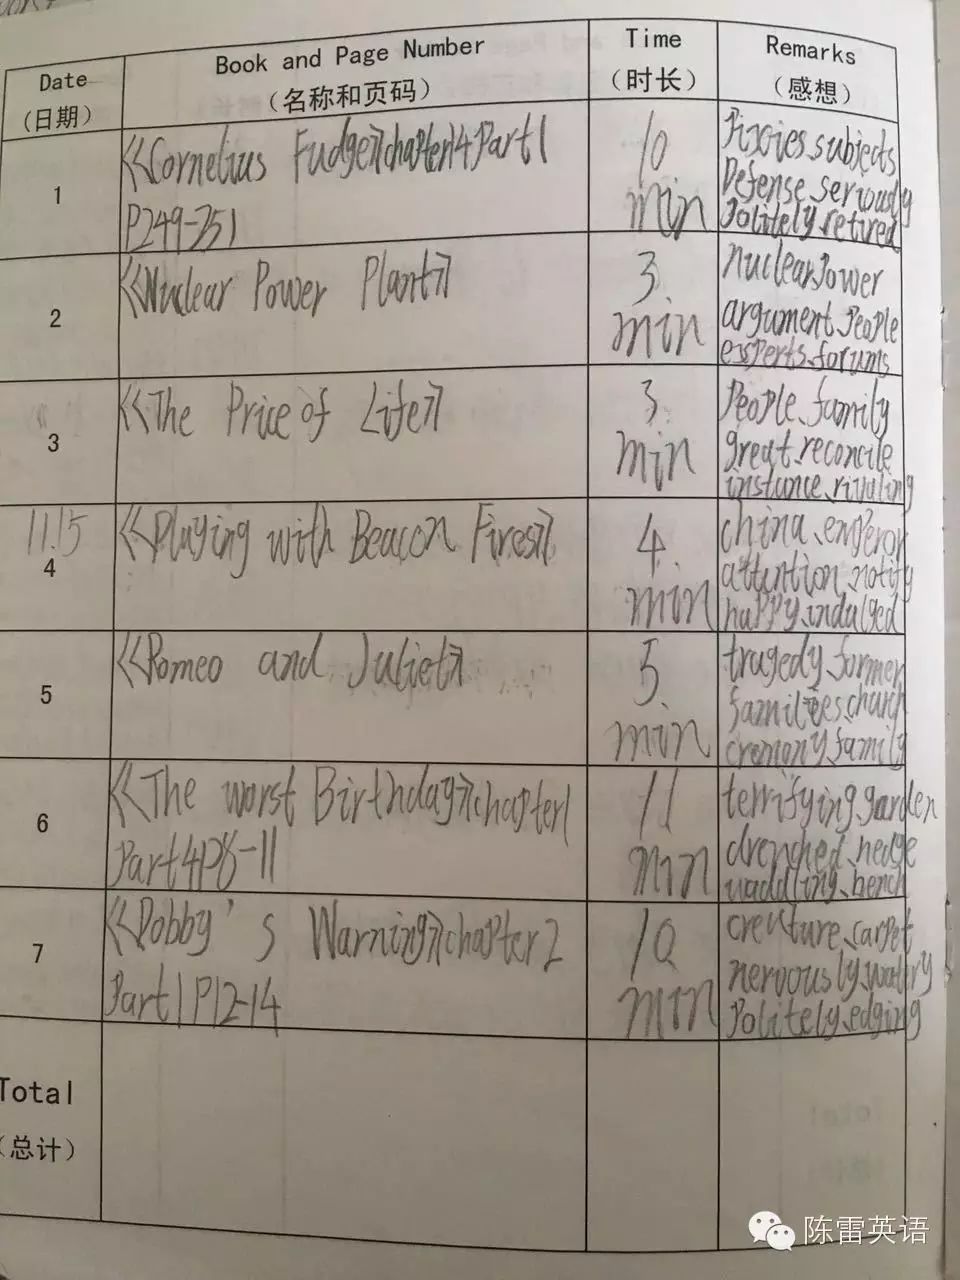 Date
(日期)
Book and Page Number
(名称和页码)
Time
(时长)
Remarks
(感想)
1
《Cornelius Fudge》chapter14Part1
P249-251
10
min
Pixies、subjects
Defense、seriously
Politely、retired
2
《Nuclear Power Plant》
3
min
nuclear、Power
argument、People
experts、forums
3
《The Price of Life》
3
min
People、family
great、reconcile
instance、rivaling
11.15
4
《Playing with Beacon Fires》
4
min
china、emperor
attention、notify
happy、indulged
5
《Romeo and Juliet》
5
min
tragedy、former
families、church
cremony、family
6
《The worst Birthday》chapter1
Part4P8-11
11
min
terrifying、garden
drenched、hedge
waddling、bench
7
《Dobby's Warning》chapter2
Part1P12-14
10
min
creature、carpet
nervously、watery
Politely、edging
Total
(总计)
陈雷英语